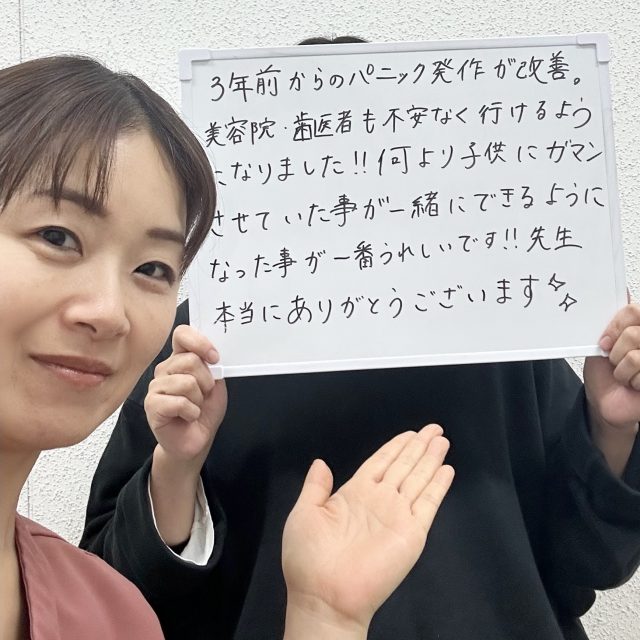 3年前からのパニック発作が改善。
美容院・歯医者も不安なく行けるよう
になりました!!何より子供にガマン
させていた事が一緒にできるように
なった事が一番うれしいです!!先生
本当にありがとうございます✨